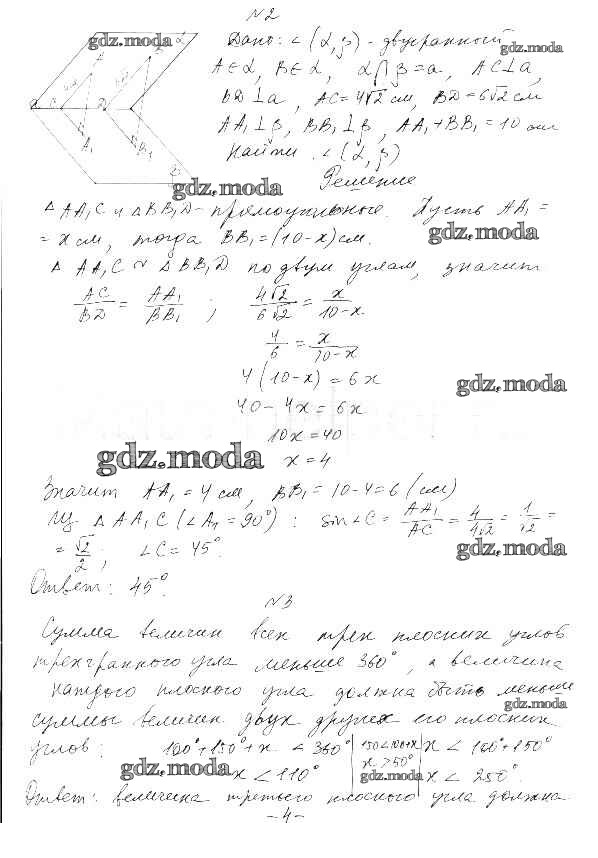 №2
gdz.moda
Дано: ∠(α, β) - двугранный
gdz.moda
A∈α, B∈α, α∩β=a, AC⊥a,
BD⊥a, AC=4√2 см, BD=6√2 см
AA₁⊥β, BB₁⊥β, AA₁+BB₁=10 см
Найти ∠(α, β)
A₁
B₁
gdz.moda
Решение
△AA₁C и △BB₁D - прямоугольные. Пусть AA₁ =
= x см, тогда BB₁=(10-x) см.
gdz.moda
△AA₁C ∾ △BB₁D по двум углам, значит
AC/BD = AA₁/BB₁ ; 4√2/6√2 = x/10-x.
4/6 = x/10-x
4(10-x) = 6x
gdz.moda
40-4x=6x
10x=40
gdz.moda
x=4
Значит AA₁=4 см, BB₁=10-4=6 (см)
Из △AA₁C (∠A₁=90°): sin∠C = AA₁/AC = 4/4√2 = 1/√2 =
= √2/2; ∠C=45°.
gdz.moda
Ответ: 45°.
№3
Сумма величин всех трех плоских углов
трехгранного угла меньше 360°, а величина
каждого плоского угла должна быть меньше
суммы величин двух других его плоских
gdz.moda
углов: 100°+150°+x < 360° | 150<100+x | x < 100°+150°
gdz.moda x<110° | x>50° | gdz.moda x < 250°.
Ответ: величина третьего плоского угла должна
-4-